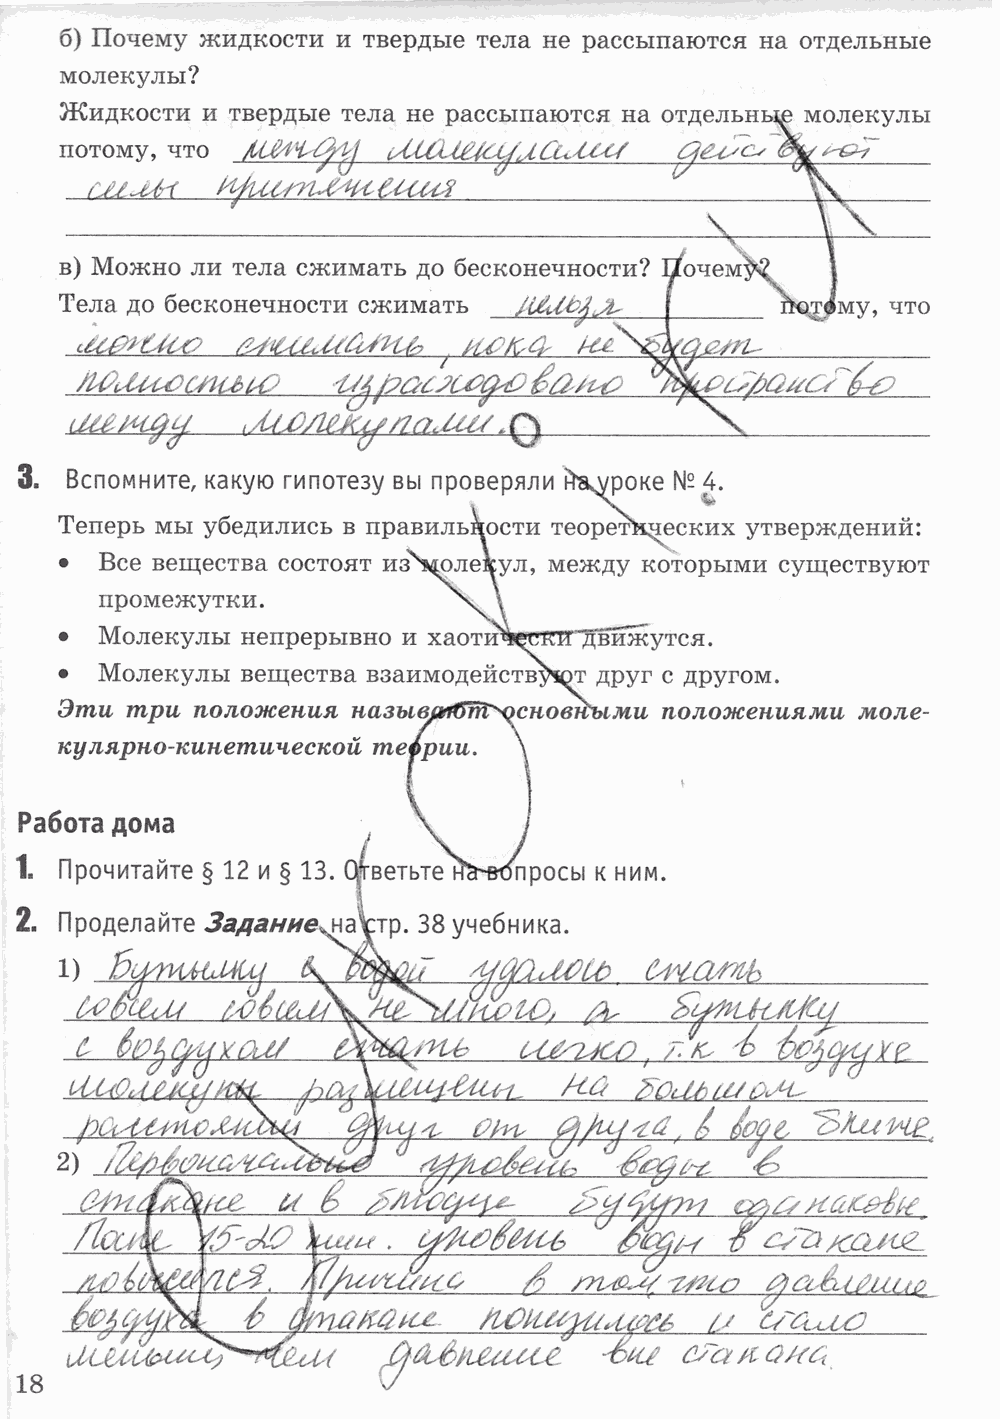 б) Почему жидкости и твердые тела не рассыпаются на отдельные
молекулы?
Жидкости и твердые тела не рассыпаются на отдельные молекулы
потому, что между молекулами действуют
силы притяжения
в) Можно ли тела сжимать до бесконечности? Почему?
Тела до бесконечности сжимать нельзя потому, что
можно сжимать, пока не будет
полностью израсходовано пространство
между молекулами.
3. Вспомните, какую гипотезу вы проверяли на уроке № 4.
Теперь мы убедились в правильности теоретических утверждений:
• Все вещества состоят из молекул, между которыми существуют
промежутки.
• Молекулы непрерывно и хаотически движутся.
• Молекулы вещества взаимодействуют друг с другом.
Эти три положения называют основными положениями моле-
кулярно-кинетической теории.
Работа дома
1. Прочитайте § 12 и § 13. Ответьте на вопросы к ним.
2. Проделайте Задание на стр. 38 учебника.
1) Бутылку с водой удалось сжать
совсем совсем не много, а бутылку
с воздухом сжать легко, т.к в воздухе
молекулы размещены на большом
расстоянии друг от друга, в воде ближе.
2) Первоначально уровень воды в
стакане и в блюдце будут одинаковы.
После 15-20 мин. уровень воды в стакане
повысился. Причина в том, что давление
воздуха в стакане понизилось и стало
меньшИ чем давление вне стакана.
18